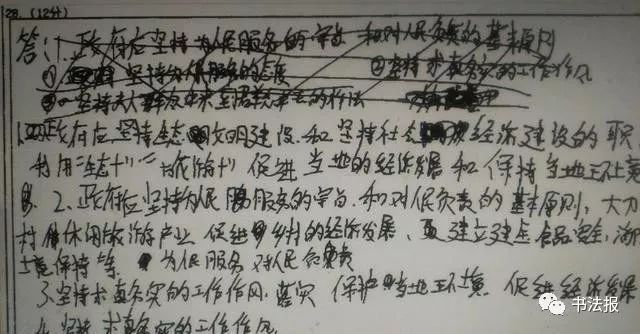 28.(12分)
答:1.政府应坚持为人民服务的宗旨 和对人民负责的基本原则
① 坚持为人民服务的态度 ②坚持求真务实的工作作风
③ 坚持从群众中来到群众中去的作法
1.政府应坚持生态文明建设和坚持社会经济建设的职
利用"生态+""旅游+"促进当地的经济发展和保持当地环境
2.政府应坚持为人民服务的宗旨.和对人民负责的基本原则,大力
村休闲旅游产业 促进乡村的经济发展、建立健全食品安全,
境保持等 为人民服务 对人民负责
3.坚持求真务实的工作作风.落实 保护当地环境 促进经济发展
4.坚持求真务实的工作作风
书法报